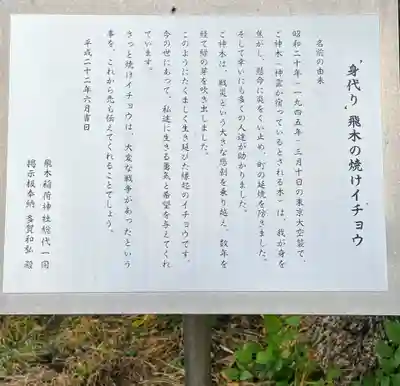 "身代り"飛木の焼けイチョウ
名前の由来
昭和二十年(一九四五年)三月十日の東京大空襲で、
ご神木(神霊が宿っているとされる木)は、我が身を
焦がし、懸命に炎をくい止め、町の延焼を防ぎました。
そして幸いにも多くの人達が助かりました。
ご神木は、戦災という大きな悲劇を乗り越え、数年を
経て緑の芽を吹き出しました。
このようにたくましく生き延びた縁起のイチョウです。
今の世にあって、私達に生きる勇気と希望を与えてくれ
ています。
きっと焼けイチョウは、大変な戦争があったという
事を、これから先も伝えてくれることでしょう。
平成二十二年六月吉日
飛木稲荷神社総代一同
掲示板奉納 多賀和弘 殿